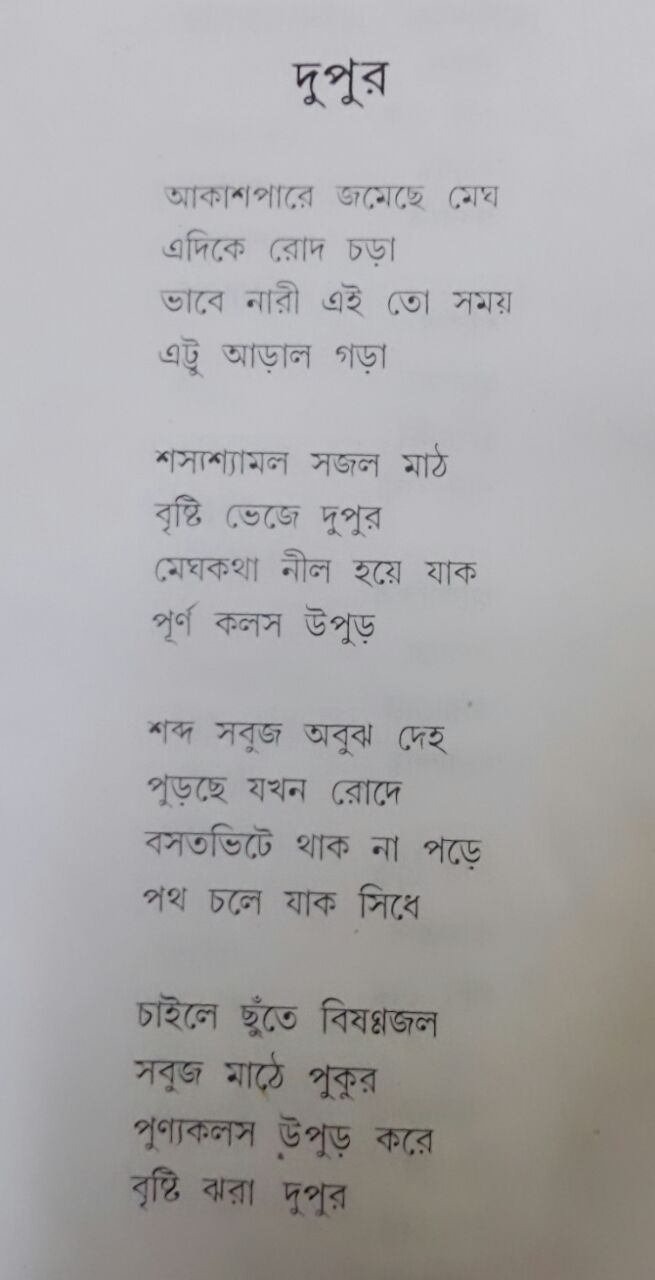 দুপুর
আকাশপারে জমেছে মেঘ
এদিকে রোদ চড়া
ভাবে নারী এই তো সময়
এট্টু আড়াল গড়া
শস্যশ্যামল সজল মাঠ
বৃষ্টি ভেজে দুপুর
মেঘকথা নীল হয়ে যাক
পূর্ণ কলস উপুড়
শব্দ সবুজ অবুঝ দেহ
পুড়ছে যখন রোদে
বসতভিটে থাক না পড়ে
পথ চলে যাক সিধে
চাইলে ছুঁতে বিষণ্ণজল
সবুজ মাঠে পুকুর
পুণ্যকলস উপুড় করে
বৃষ্টি ঝরা দুপুর